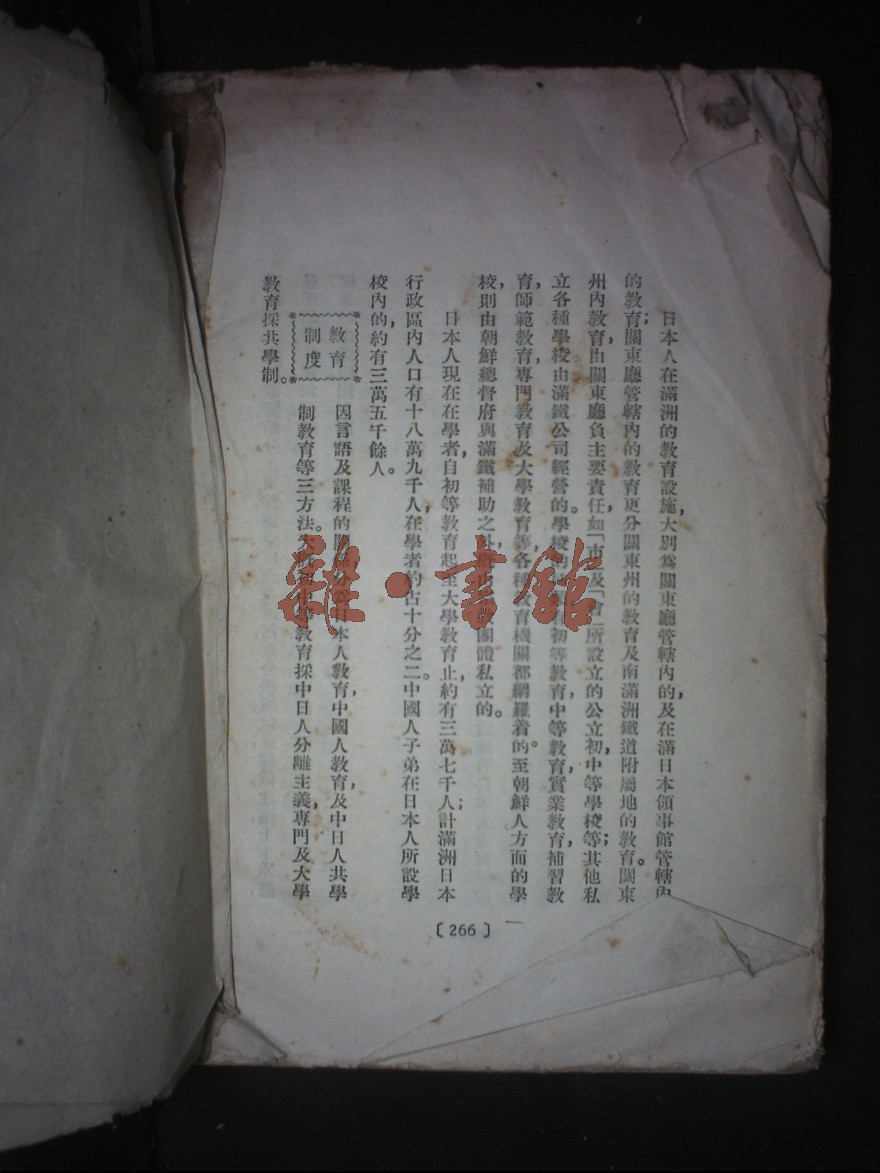 日本人在滿洲的教育設施，大別爲關東廳管轄內的，及在滿日本領事館管轄內
的教育；關東廳管轄內的教育更分關東州的教育及南滿洲鐵道附屬地的教育。關東
州內教育，由關東廳負主要責任，如「市」及「會」所設立的公立初，中等學校等；其他私
立各種學校由滿鐵公司經營的。學校的 初等教育，中等教育，實業教育，補習教
育，師範教育，專門教育及大學教育等，各種教育機關都網羅着的。至朝鮮人方面的學
校，則由朝鮮總督府與滿鐵補助之外， 團體私立的。
日本人現在在學者，自初等教育起至大學教育止，約有三萬七千人；計滿洲日本
行政區內人口有十八萬九千人，在學者約占十分之二。中國人子弟在日本人所設學
校內的，約有三萬五千餘人。
教育
制度
因言語及課程的關係，分公日本人教育，中國人教育，及中日人共學
制教育等三方法。 中等教育採中日人分離主義，專門及大學
教育採共學制。
〔266〕
雜·書館